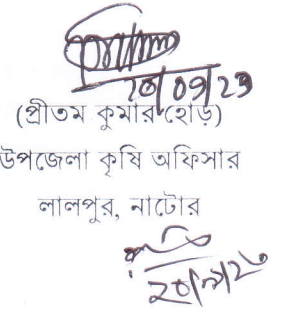 ২০/০9/২৩
(প্রীতম কুমার হোড়)
উপজেলা কৃষি অফিসার
লালপুর, নাটোর